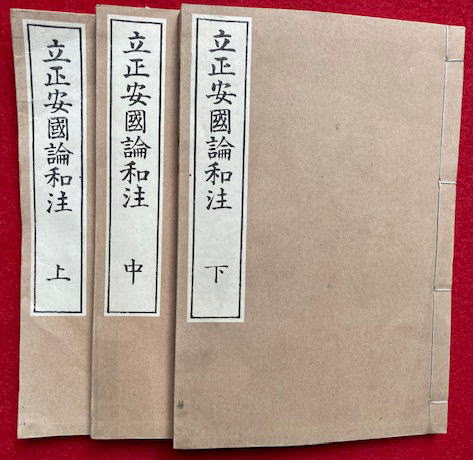 立正安國論和注 上
立正安國論和注 中
立正安國論和注 下